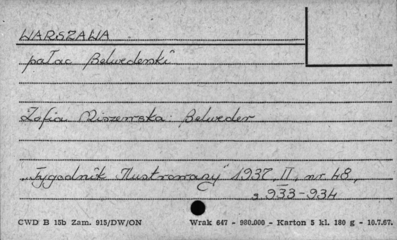 WARSZAWA
pałac Belwederski
Zofia Miszewska: Belweder
„Tygodnik Ilustrowany" 1937, II, nr. 48,
s. 933-934
CWD B 15b Zam. 915/DW/ON Wrak 647 - 980.000 - Karton 5 kl. 180 g - 10.7.67.